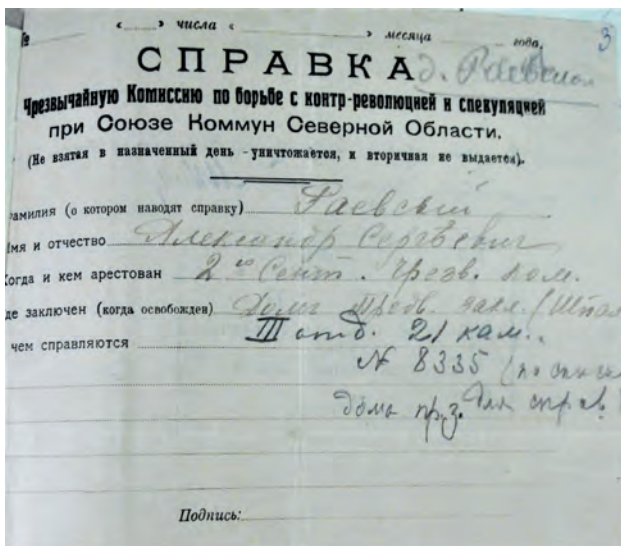 № « » числа « » месяца года. 3
СПРАВКА д. Раевского
Чрезвычайную Комиссию по борьбе с контр-революцией и спекуляцией
при Союзе Коммун Северной Области.
(Не взятая в назначенный день - уничтожается, и вторичная не выдается).
амилия (о котором наводят справку) Раевский
Имя и отчество Александр Сергѣевич
Когда и кем арестован 2го Сент. Чрезв. Ком.
де заключен (когда освобожден) Домъ Предв. закл. (Шпал
чем справляются III отд. 21 кам.
№ 8335 (по
дома пр.з. для справ
Подпись: